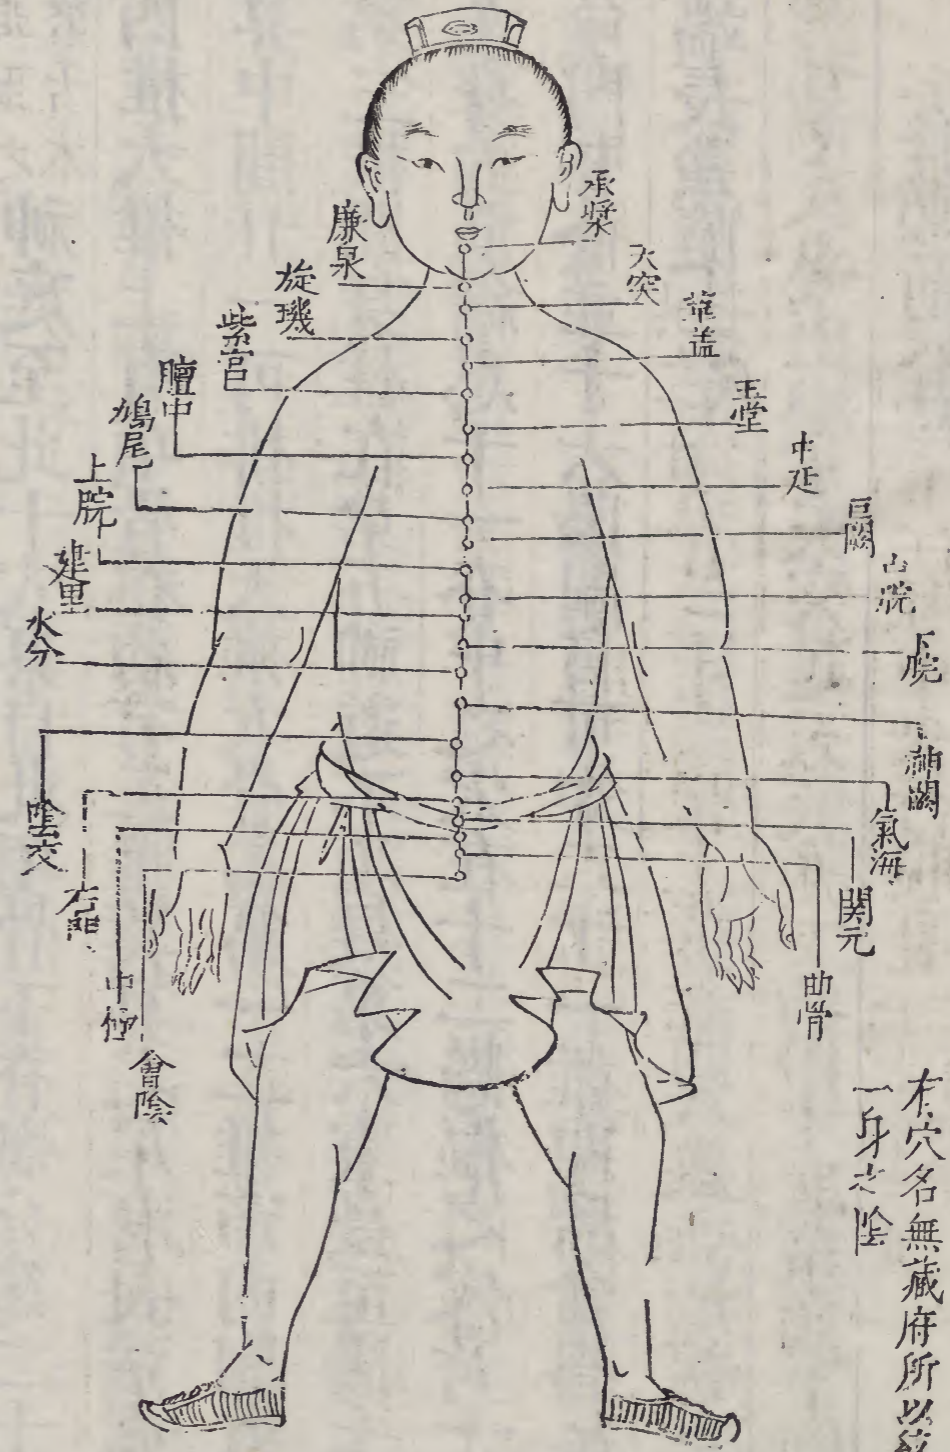 承漿
廉泉
天突
旋璣
華盖
紫宫
玉堂
膻中
中廷
鳩尾
巨闕
上脘
中脘
建里
下脘
水分
神闕
陰交
氣海
石門
関元
中極
曲骨
會陰
右穴名無藏府所以統
一身之陰